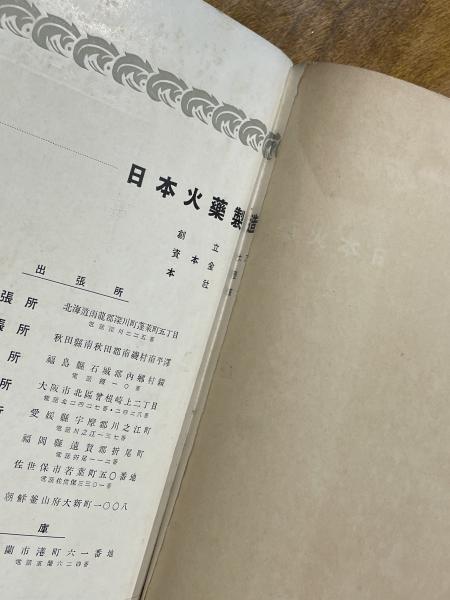 日本火藥製造
創立
資本金
本社
出張所
張所 北海道雨龍郡深川町蓬莱町五丁目
電話深川二二五番
張所 秋田縣南秋田郡南磯村南平澤
所 福島縣石城郡內鄕村綴
電話綴一〇番
所 大阪市北區曾根崎上二丁目
電話北二四二七番・二四二八番
所 愛媛縣宇摩郡川之江町
電話川之江一三七番
福岡縣遠賀郡折尾町
電話折尾一一二番
佐世保市若葉町五〇番地
電話佐世保三三〇一番
朝鮮釜山府大新町一〇〇八
庫
蘭市港町六一番地
電話室蘭六二四番
日本火